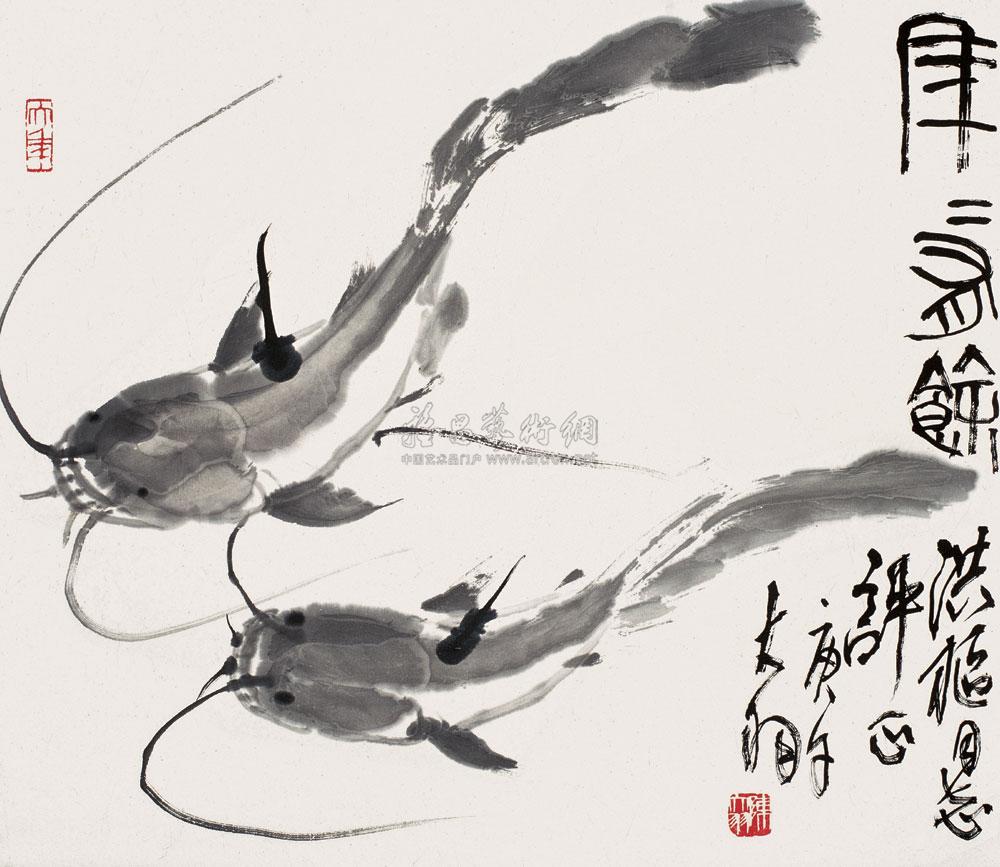 年二有餘
洪樞同志
評正
庚午
大羽
雅昌藝術網
中国艺术品门户 www.artron.net